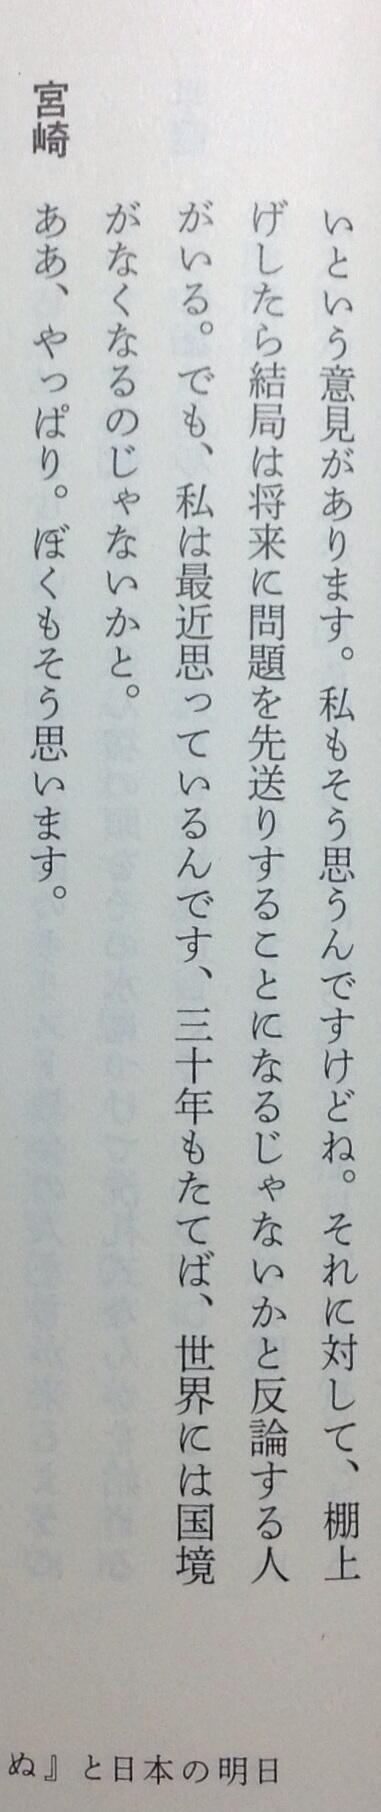 いという意見があります。私もそう思うんですけどね。それに対して、棚上
げしたら結局は将来に問題を先送りすることになるじゃないかと反論する人
がいる。でも、私は最近思っているんです、三十年もたてば、世界には国境
がなくなるのじゃないかと。
宮崎　ああ、やっぱり。ぼくもそう思います。
ぬ』と日本の明日